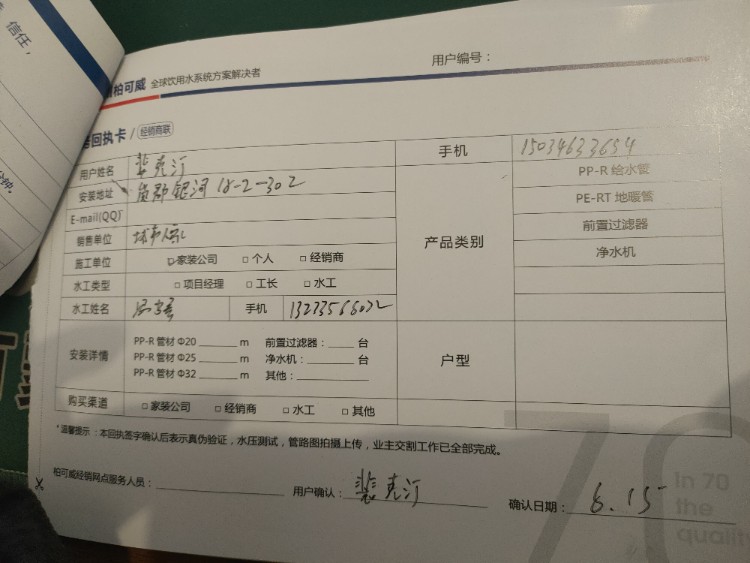 信任,
柏可威 全球饮用水系统方案解决者
用户编号:
回执卡 / 经销商联
用户姓名 裴克汀 手机 15034633654
安装地址 银河 18-2-302 产品类别 PP-R 给水管
E-mail(QQ) PE-RT 地暖管
销售单位 城市人家 前置过滤器
施工单位 家装公司 个人 经销商 净水机
水工类型 项目经理 工长 水工
水工姓名 手机 13233566032
安装详情 PP-R 管材 Φ20 m 前置过滤器: 台 户型
PP-R 管材 Φ25 m 净水机: 台
PP-R 管材 Φ32 m 其他:
购买渠道 家装公司 经销商 水工 其他
*温馨提示:本回执签字确认后表示真伪验证,水压测试,管路图拍摄上传,业主交割工作已全部完成。
柏可威经销网点服务人员: 用户确认: 裴克汀 确认日期: 8.15
70
In 70
the
quality